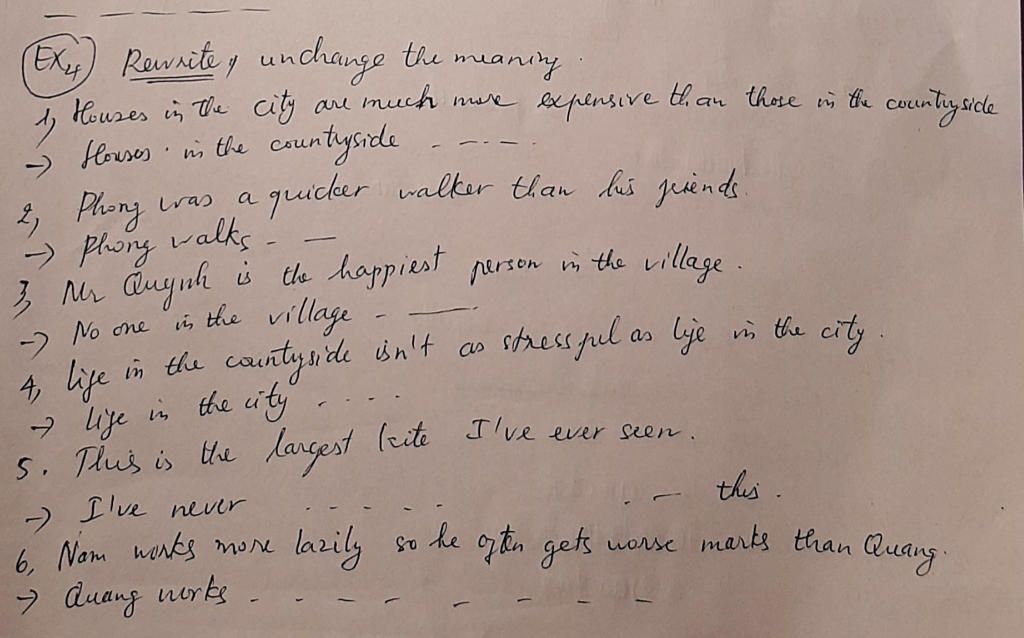 Ex4 Rewrite, unchange the meaning.
1, Houses in the city are much more expensive than those in the countryside
→ Houses in the countryside - - - - .
2, Phong was a quicker walker than his friends.
→ Phong walks - —
3, Mr Quynh is the happiest person in the village.
→ No one in the village - —
4, life in the countryside isn't as stressful as life in the city.
→ life in the city . . . .
5. This is the largest kite I've ever seen.
→ I've never - - - - - . — this.
6, Nam works more lazily so he often gets worse marks than Quang.
→ Quang works - - - - - - - -